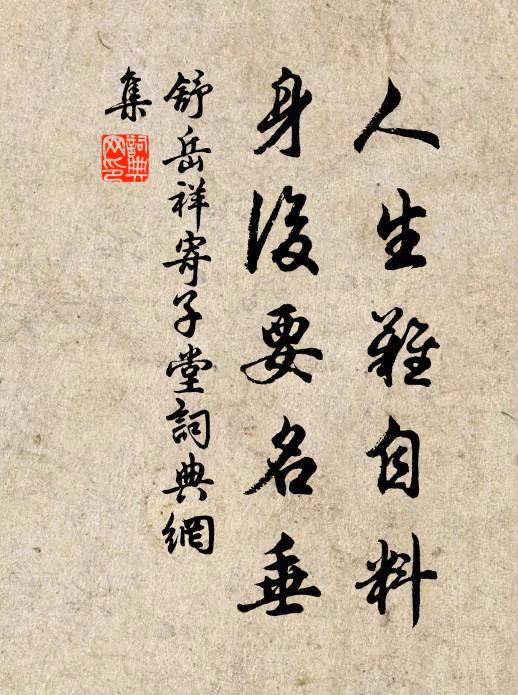 人生難自料
身後要名垂
舒岳祥寄子堂詞典網
集
詞典网印